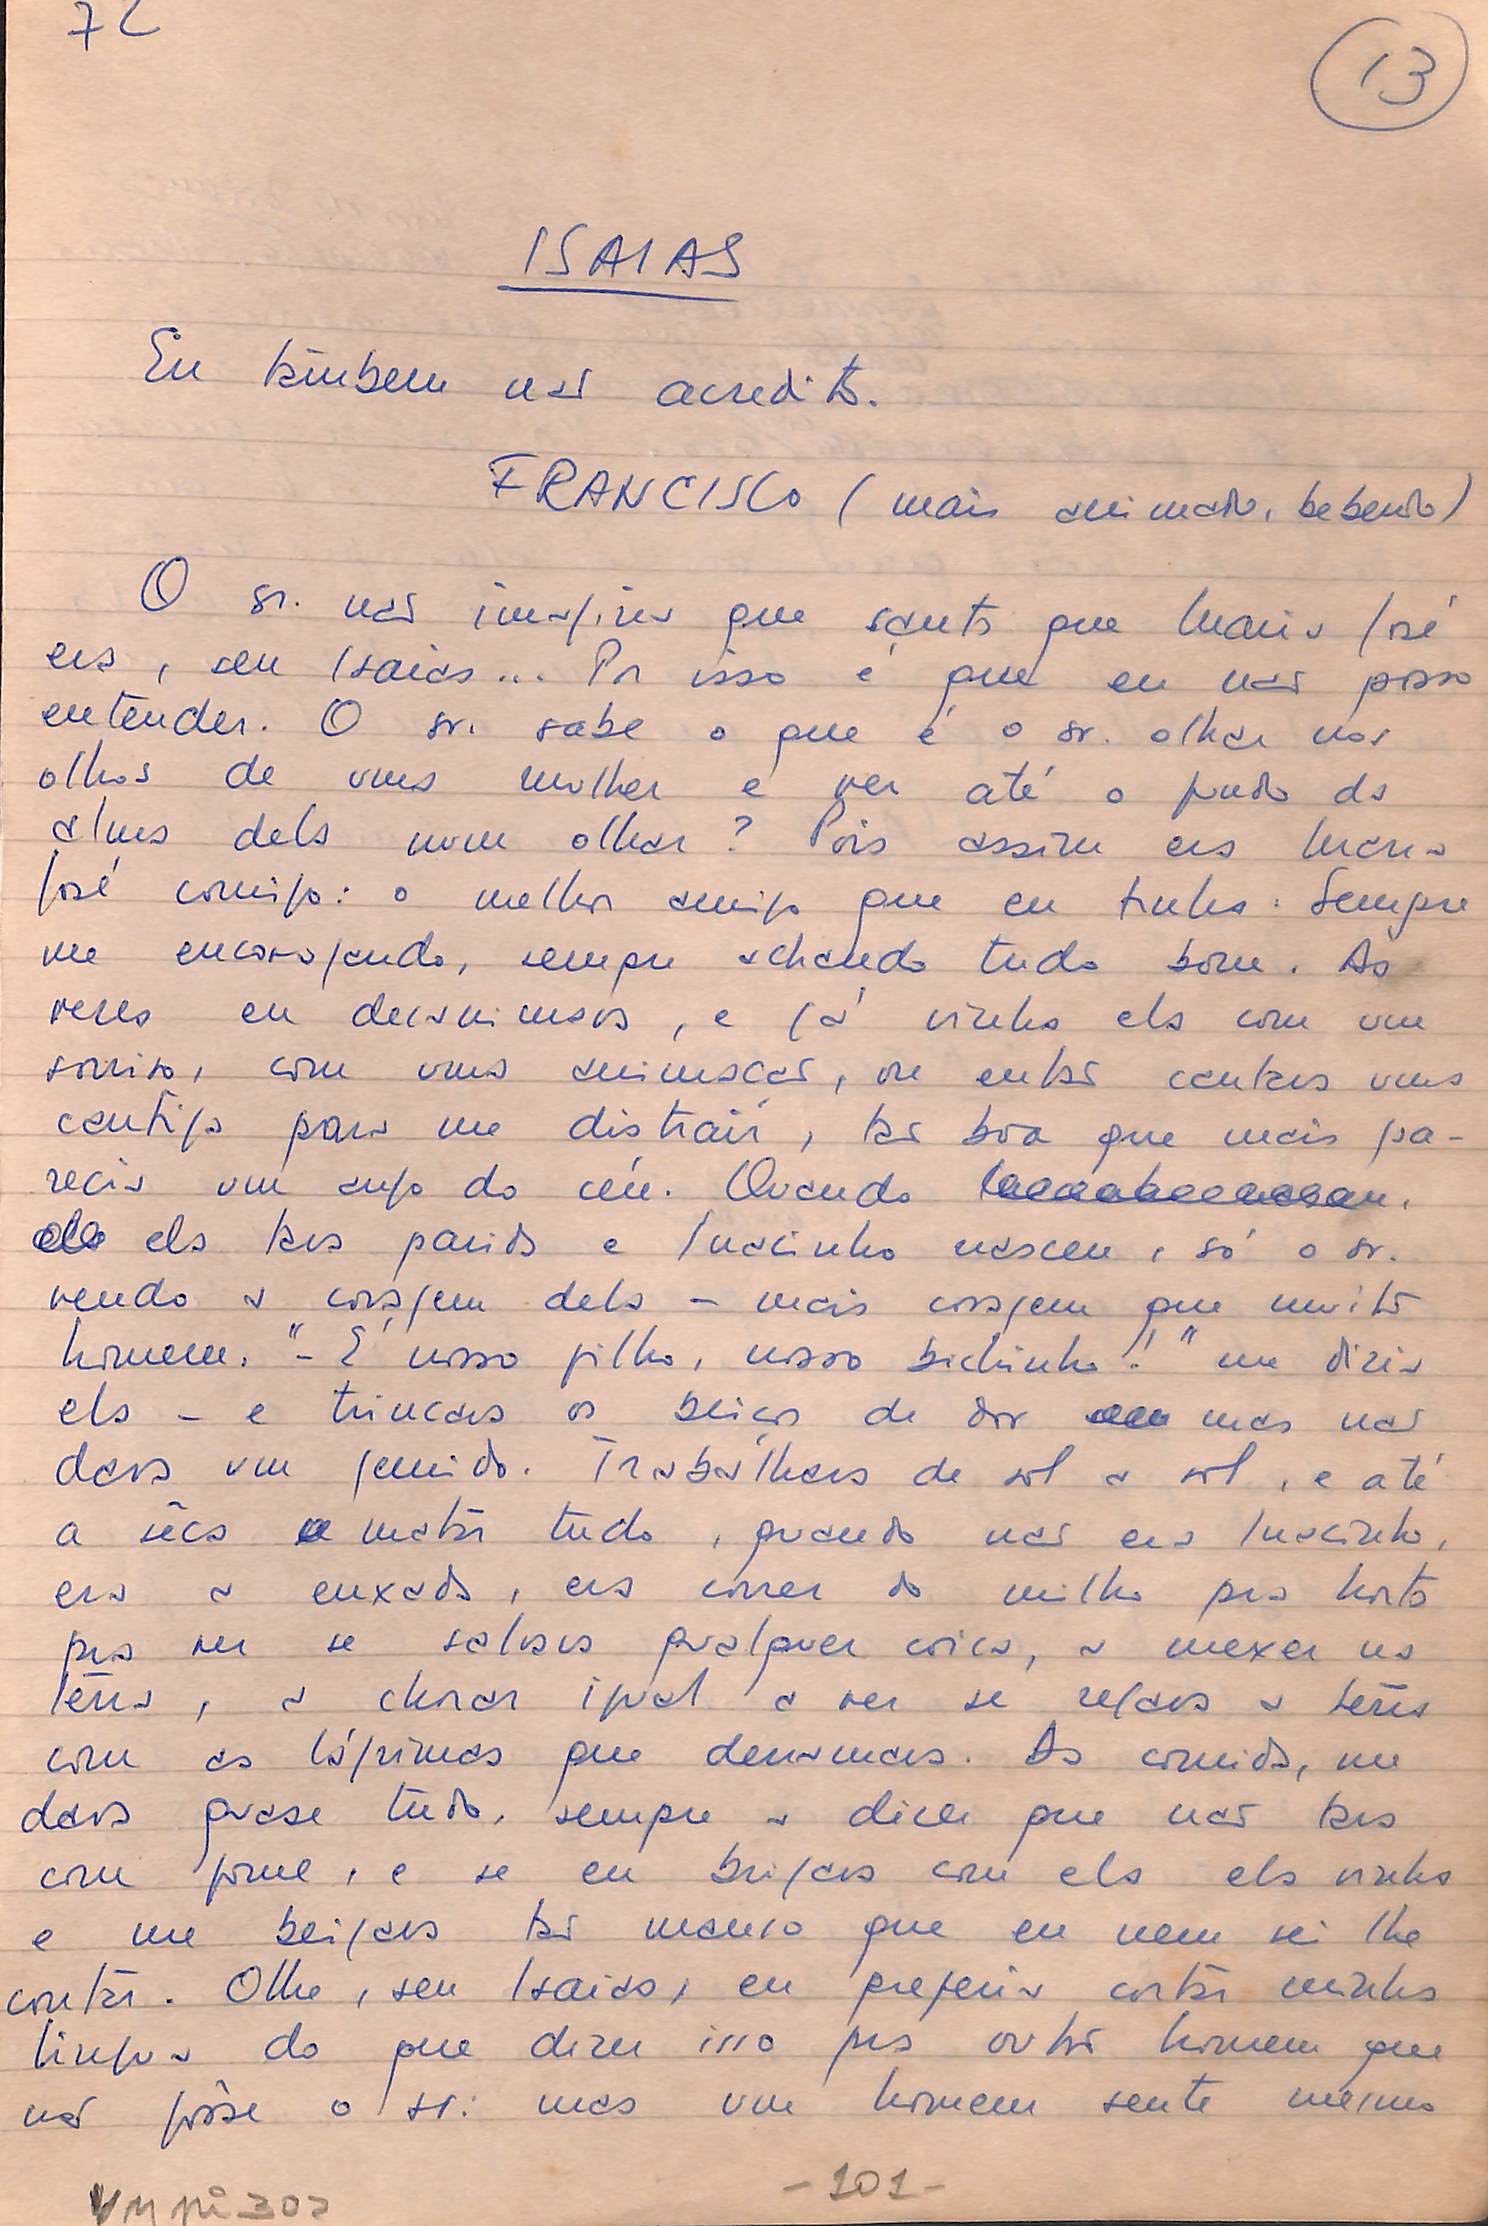 72
13
ISAIAS
Eu também não acredito.
FRANCISCO (mais animado, bebendo)
O sr. não imagina que santa que Maria José
era, seu Isaias... Por isso é que eu não posso
entender. O sr. sabe o que é o sr. olhar nos
olhos de uma mulher e ver até o fundo da
alma dela num olhar? Pois assim era Maria
José comigo: o melhor amigo que eu tinha. Sempre
me encorajando, sempre achando tudo bom. As
vezes eu desanimava, e lá vinha ela com um
sorriso, com uma animação, ou então cantava uma
cantiga para me distrair, tão boa que mais pa-
recia um anjo do céu. Quando
ela tava parida e Inacinho nasceu, só o sr.
vendo a coragem dela – mais coragem que muito
homem. "– É nosso filho, nosso bichinho!" me dizia
ela – e trincava os beiços de dor mas não
dava um gemido. Trabalhava de sol a sol, e até
a sêca matar tudo, quando não era Inacinho,
era a enxada, era correr do milho pra horta
pra ver se salvava qualquer coisa, a mexer na
terra, a chorar igual a ver se regava a terra
com as lágrimas que derramava. Da comida, me
dava quase tudo, sempre a dizer que não tava
com fome, e se eu brigava com ela ela vinha
e me beijava tão manso que eu nem sei lhe
contar. Olhe, seu Isaias, eu preferia cortar minha
lingua do que dizer isso pra outro homem que
não fôsse o sr: mas um homem sente mesmo
-101-